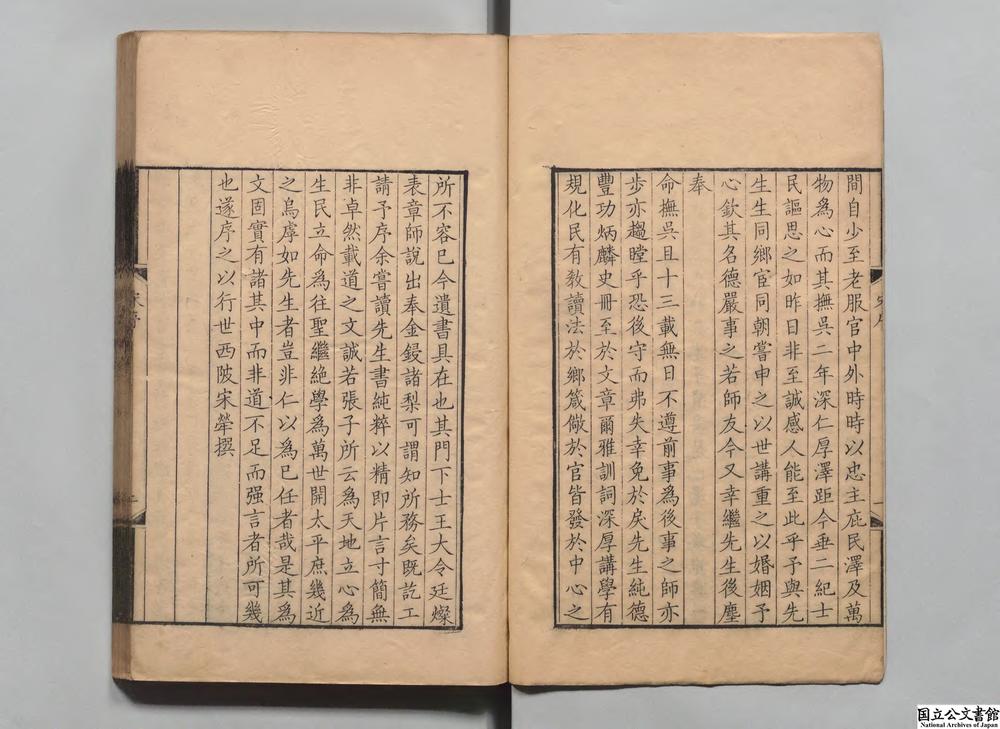 間自少至老服官中外時時以忠主庇民澤及萬
物為心而其撫吳二年深仁厚澤距今垂二紀士
民謳思之如昨日非至誠感人能至此乎予與先
生生同鄉宦同朝嘗申之以世講重之以婚姻予
心欽其名德嚴事之若師友今又幸繼先生後塵
奉
命撫吳且十三載無日不遵前事為後事之師亦
步亦趨瞠乎恐後守而弗失幸免於戾先生純德
豐功炳麟史冊至於文章爾雅訓詞深厚講學有
規化民有敎讀法於鄉箴儆於官皆發於中心之
所不容已今遺書具在也其門下士王大令廷燦
表章師說出奉金鋟諸梨可謂知所務矣既訖工
請予序余嘗讀先生書純粹以精即片言寸簡無
非卓然載道之文誠若張子所云為天地立心為
生民立命為往聖繼絕學為萬世開太平庶幾近
之烏虖如先生者豈非仁以為已任者哉是其為
文固實有諸其中而非道不足而强言者所可幾
也遂序之以行世西陂宋犖撰
国立公文書館
National Archives of Japan